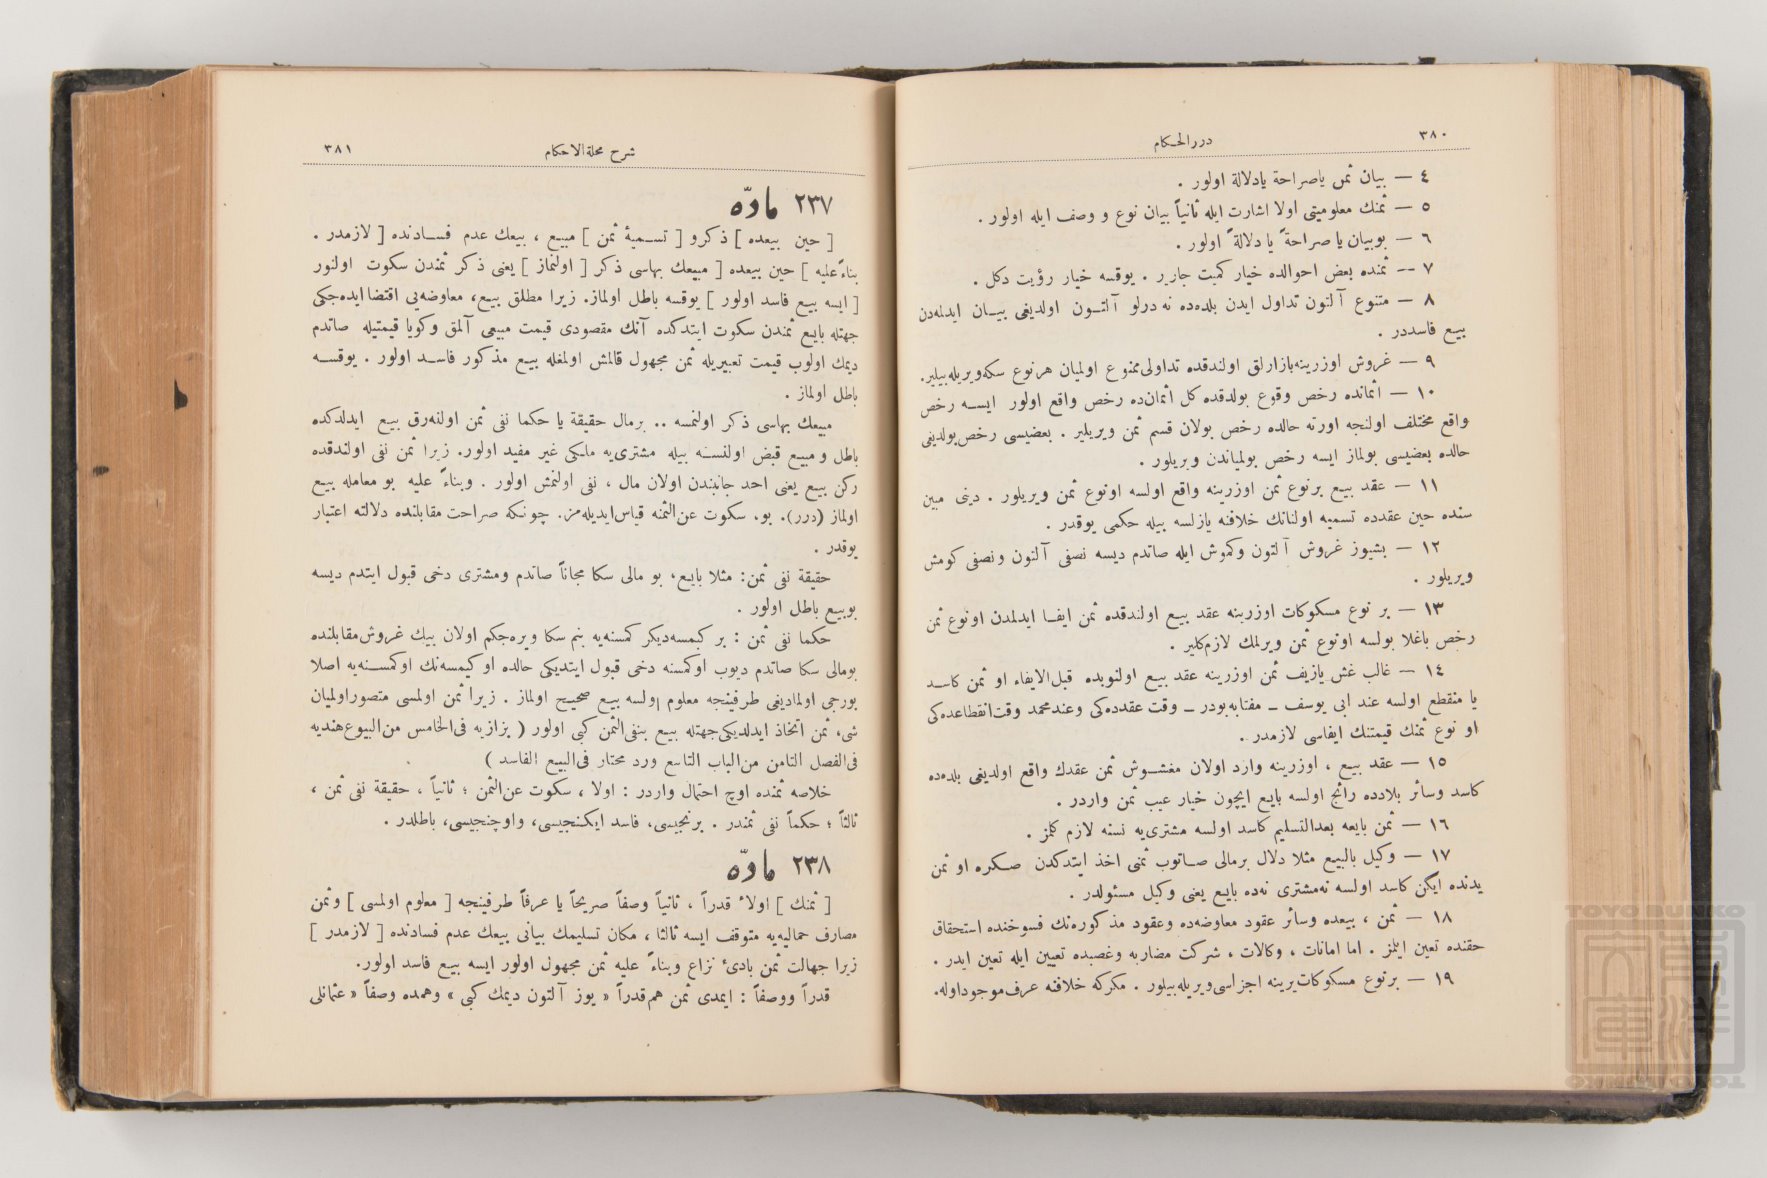 ٣٨٠
دررالحكام
٤ — بيان ثمن ياصراحة يادلالة اولور .
٥ — ثمنك معلوميتى اولا اشارت ايله ثانياً بيان نوع و وصف ايله اولور .
٦ — بوبيان يا صراحةً يا دلالةً اولور .
٧ — ثمنده بعض احوالده خيار كميت جارير . يوقسه خيار رؤيت دكل .
٨ — متنوع آلتون تداول ايدن بلده‌ده نه درلو آلتــون اولديغى بيــان ايدلمه‌دن
بيع فاسددر .
٩ — غروش اوزرينه‌بازارلق اولندقده تداولى ممنوع اولميان هرنوع سكه‌ويريله‌بيلير.
١٠ — اثمانده رخص وقوع بولدقده كل اثمان‌ده رخص واقع اولور ايســه رخص
واقع مختلف اولنجه اورته حالده رخص بولان قسم ثمن ويريلير . بعضيسى رخص‌بولديغى
حالده بعضيسى بولماز ايسه رخص بولمياندن ويريلور .
١١ — عقد بيع برنوع ثمن اوزرينه واقع اولسه اونوع ثمن ويريلور . دينى مبين
سنده حين عقدده تسميه اولنانك خلافنه يازلسه بيله حكمى يوقدر .
١٢ — بشيوز غروش آلتون وكموش ايله صاتدم ديسه نصفى آلتون ونصفى كومش
ويريلور .
١٣ — بر نوع مسكوكات اوزرينه عقد بيع اولندقده ثمن ايفــا ايدلمدن اونوع ثمن
رخص ياغلا بولسه اونوع ثمن ويرلمك لازم‌كلير .
١٤ — غالب غش يازيف ثمن اوزرينه عقد بيع اولنوبده قبل‌الايفاء او ثمن كاسـد
يا منقطع اولسه عند ابى يوسف ــ مفتابه‌بودر ــ وقت عقدده‌كى وعندمحمد وقت‌انقطاعده‌كى
او نوع ثمنك قيمتنك ايفاسى لازمدر .
١٥ — عقد بيع ، اوزرينه وارد اولان مغشــوش ثمن عقدك واقع اولديغى بلده‌ده
كاسد وسائر بلادده رائج اولسه بايع ايچون خيار عيب ثمن واردر .
١٦ — ثمن بايعه بعدالتسليم كاسد اولسه مشترى‌يه نسنه لازم كلمز .
١٧ — وكيل بالبيع مثلا دلال برمالى صــاتوب ثمنى اخذ ايتدكدن صـكره او ثمن
يدنده ايكن كاسد اولسه نه‌مشترى نه‌ده بايع يعنى وكيل مسئولدر .
١٨ — ثمن ، بيعده وسائر عقود معاوضه‌ده وعقود مذكوره‌نك فسوخنده استحقاق
حقنده تعين ايلمز . اما امانات ، وكالات ، شركت مضاربه وغصبده تعيين ايله تعين ايدر .
١٩ — برنوع مسكوكات‌يرينه اجزاسى‌ويريله‌بيلور . مكركه خلافنه عرف‌موجوداوله.
شرح مجلةالاحكام
٣٨١
٢٣٧ مادّه
[ حين بيعده ] ذكرو [ تســميهٔ ثمن ] مبيع ، بيعك عدم فســادنده [ لازمدر .
بناءً عليه ] حين بيعده [ مبيعك بهاسى ذكر [ اولنماز ] يعنى ذكر ثمندن سكوت اولنور
[ ايسه بيع فاسد اولور ] يوقسه باطل اولماز. زيرا مطلق بيع، معاوضه‌يى اقتضا ايده‌جكى
جهتله بايع ثمندن سكوت ايتدكده آنك مقصودى قيمت مبيعى آلمق وكويا قيمتيله صاتدم
ديمك اولوب قيمت تعبيريله ثمن مجهول قالمش اولمغله بيع مذكور فاسـد اولور . يوقســه
باطل اولماز .
مبيعك بهاسى ذكر اولنمسه .. برمال حقيقة يا حكما نفى ثمن اولنه‌رق بيع ايدلدكده
باطل و مبيع قبض اولنســه بيله مشترى‌يه ملكى غير مفيد اولور. زيرا ثمن نفى اولندقده
ركن بيع يعنى احد جانبندن اولان مال ، نفى اولنمش اولور . وبناءً عليه بو معامله بيع
اولماز (درر). بو، سكوت عن‌الثمنه قياس‌ايديله‌مز. چونكه صراحت مقابلنده دلالته اعتبار
يوقدر .
حقيقة نفى ثمن: مثلا بايع، بو مالى سكا مجاناً صاتدم ومشترى دخى قبول ايتدم ديسه
بوبيع باطل اولور .
حكما نفى ثمن : بر كيمسه‌ديكر كمسنه‌يه بنم سكا ويره‌جكم اولان بيك غروش‌مقابلنده
بومالى سكا صاتدم ديوب اوكمسنه دخى قبول ايتديكى حالده او كيمسه‌نك اوكمســنه‌يه اصلا
بورجى اولماديغى طرفينجه معلوم اولسه بيع صحيح اولماز . زيرا ثمن اولمسى متصوراولميان
شى، ثمن اتخاذ ايدلديكى‌جهتله بيع بنفى‌الثمن كبى اولور ( بزازيه فى‌الخامس من‌البيوع‌هنديه
فى‌الفصل الثامن من‌الباب التاسع ورد محتار فى‌البيع الفاسد )
خلاصه ثمنده اوچ احتمال واردر : اولا ، سكوت عن‌الثمن ؛ ثانياً ، حقيقة نفى ثمن ،
ثالثاً ؛ حكماً نفى ثمندر . برنجيسى، فاسد ايكنجيسى، واوچنجيسى، باطلدر .
٢٣٨ مادّه
[ ثمنك ] اولاً قدراً ، ثانياً وصفاً صريحاً يا عرفاً طرفينجه [ معلوم اولمسى ] وثمن
مصارف حماليه‌يه متوقف ايسه ثالثا ، مكان تسليمك بيانى بيعك عدم فسادنده [ لازمدر ]
زيرا جهالت ثمن بادئ نزاع وبناءً عليه ثمن مجهول اولور ايسه بيع فاسد اولور.
قدراً ووصفاً : ايمدى ثمن هم‌قدراً « يوز آلتون ديمك كبى » وهمده وصفاً « عثمانلى
TOYO BUNKO
東洋文庫
TOYO BUNKO